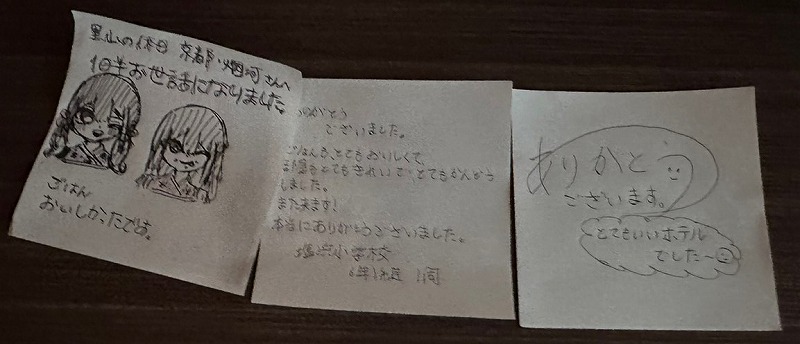 里山の休日 京都・烟河さんへ
1日半お世話になりました。
ごはん
おいしかったです。
ありがとう
ございました。
ごはんも、とてもおいしくて、
部屋もとてもきれいで、とてもかんどう
しました。
また来ます!
本当にありがとうございました。
小学校
6年
ありがとう
ございます。
とてもいいホテル
でした〜